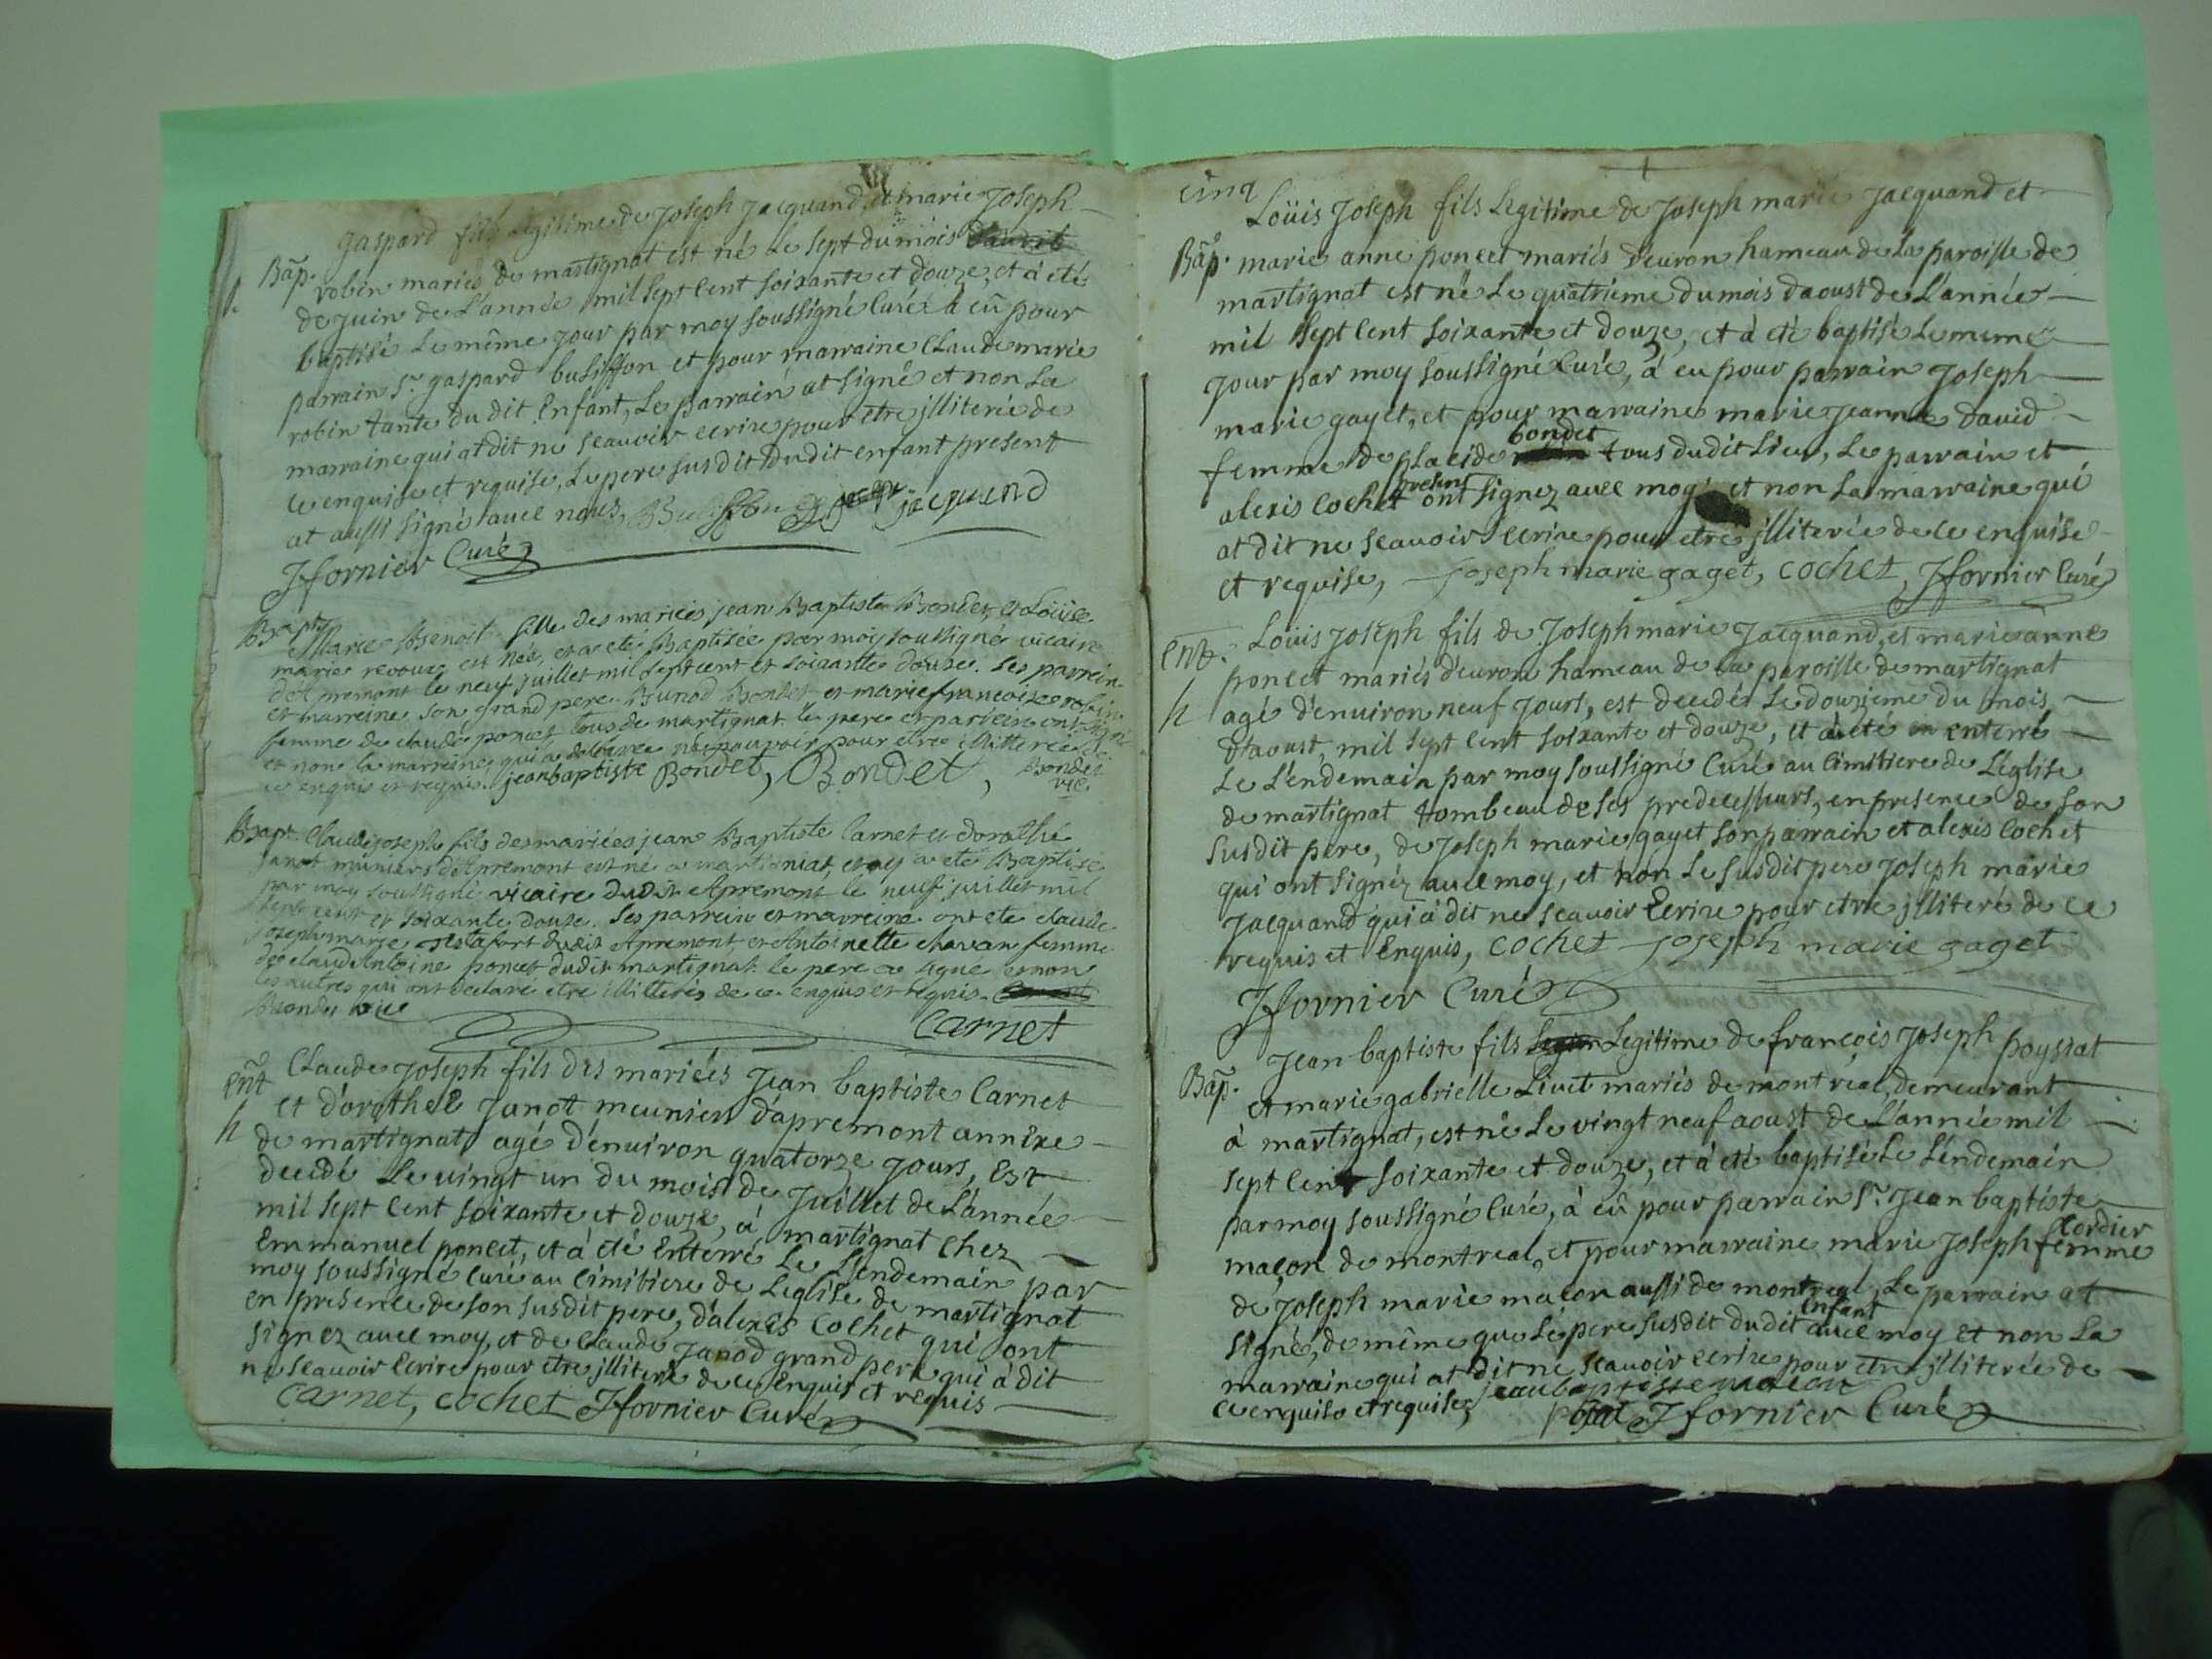 gaspard fils legitime de Joseph Jacquand, et marie Joseph
Bap. robin mariés de martignat est né le sept du mois d'avril
de juin de L'année mil sept cent soixante et douze, et à été
baptisé le même jour par moy soussigné Curé à eû pour
parrain Sr. gaspard busiffon et pour marraine Claude marie
robin tante du dit Enfant, le parrain at signé et non la
marraine qui at dit ne scauoir ecrire pour etre jlliterée de
ce enquise et requise, le pere susdit dudit enfant present
at aussi signé auec nous, Busiffon Joseph jacquend
Jfornier Curé
Bapt Marie Benoit fille des mariées jean Baptiste Bondet, et Loüise
marie revoux est Née, et a eté Baptisée par moy soussigné vicaire
d'Apremont le neuf juillet mil sept cent et soixante douze. Ses parrein
et marreine son grand pere Bondet et marie francoise robin
femme de claude poncet tous de martignat le pere et parrein ont signé
et non la marreine qui a déclarée ne pouvoir pour etre illiterée de
ce enquis et requis. jean baptiste Bondet, Bondet, Bondet
vic.
Bapt. Claude joseph fils des mariées jean Baptiste Carnet et dorothé
Janot muniers d'Apremont est né a martigniat, et a eté Baptisé
par moy soussigné vicaire dudit Apremont le neuf juillet mil
sept cent et soixante douze. Ses parrein et marreine ont eté claude
joseph marie dudit Apremont et Antoinette chavan femme
de claud Antoine poncet dudit martignat le pere a signé et non
les autres qui ont declaré etre illiterés de ce enquis et requis.
Bondet vic Carnet
Ent Claude Joseph fils des mariées Jean baptiste Carnet
et d'orothée Janot meuniers d'apremont annexe
h de martignat agé d'enuiron quatorze jours, est
decedé le vingt un du mois de Juillet de L'année
mil sept cent soixante et douze, à martignat chez
Emmanuel poncet, et à été Enterré le L'endemain par
moy soussigné Curé au Cimitiere de L'eglise de martignat
en presence de son susdit pere, d'alexis Cochet qui ont
signez auec moy, et de Claude Janod grand pere qui à dit
ne scauoir Ecrire pour etre jlliteré de ce Enquis et requis
Carnet, Cochet Jfornier Curé
cinq
Loüis Joseph fils legitime de Joseph marie Jacquand et
Bap. marie anne poncet mariés d'euron hameau de la paroisse de
martignat est né le quatrieme du mois d'aoust de L'année
mil sept cent soixante et douze, et à été baptisé le meme
jour par moy soussigné Curé, à eu pour parrain Joseph
marie gayet, et pour marraine marie jeanne david
femme de placide bondet tous dudit lieu, le parrain et
alexis Cochet present ont signez auec moy et non la marraine qui
at dit ne scauoir ecrire pour etre jlliterée de ce enquise
et requise, joseph marie gaget, cochet, Jfornier Curé
Ent. Loüis Joseph fils de Joseph marie Jacquand, et marie anne
poncet mariés d'euron hameau de la paroisse de martignat
h agé d'enuiron neuf jours, est decedé le douzieme du mois
d'aoust, mil sept cent soixante et douze, et à été enterré
le L'endemain par moy soussigné Curé au Cimitiere de L'église
de martignat tombeau de ses predecesseurs, en presence de son
susdit pere, de Joseph marie gayet son parrain et alexis Cochet
qui ont signéz auec moy, et non le susdit pere Joseph marie
Jacquand qui à dit ne scauoir Ecrire pour etre jlliteré de ce
requis et Enquis, cochet joseph marie gaget
Jfornier Curé
Jean baptiste fils Legitime de françois Joseph poyssat
Bap. et marie gabrielle Livet mariés de montréal, demeurant
à martignat, est né le vingt neuf aoust de L'année mil
sept cent soixante et douze, et à été baptisé le L'endemain
par moy soussigné Curé, à eû pour parrain Sr. Jean baptiste
maçon de montreal, et pour marraine marie Joseph Cordier femme
de Joseph marie maçon aussi de montreal, le parrain at
signé, de même que le pere susdit dudit enfant auec moy et non la
marraine qui at dit ne scauoir ecrire pour etre jlliterée de
ce enquise et requise, jean baptiste macon
Jfornier Curé